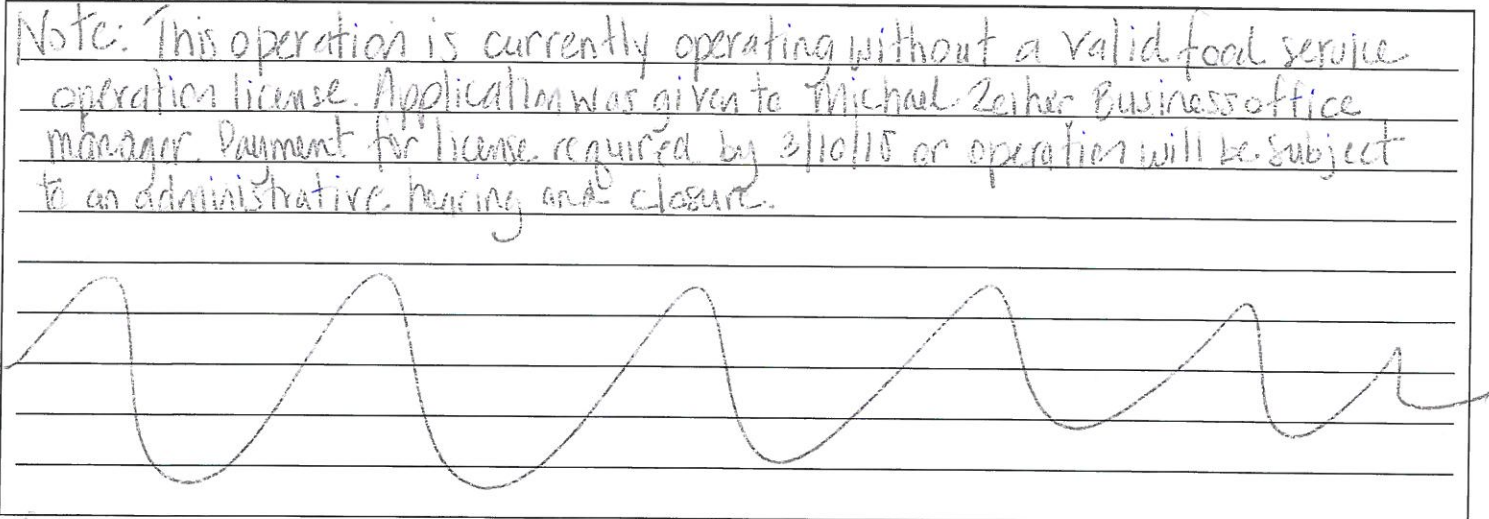 Note: This operation is currently operating without a valid food service
operation license. Application was given to Michael Zeiher Business office
manager. Payment for license required by 3/10/15 or operation will be subject
to an administrative hearing and closure.